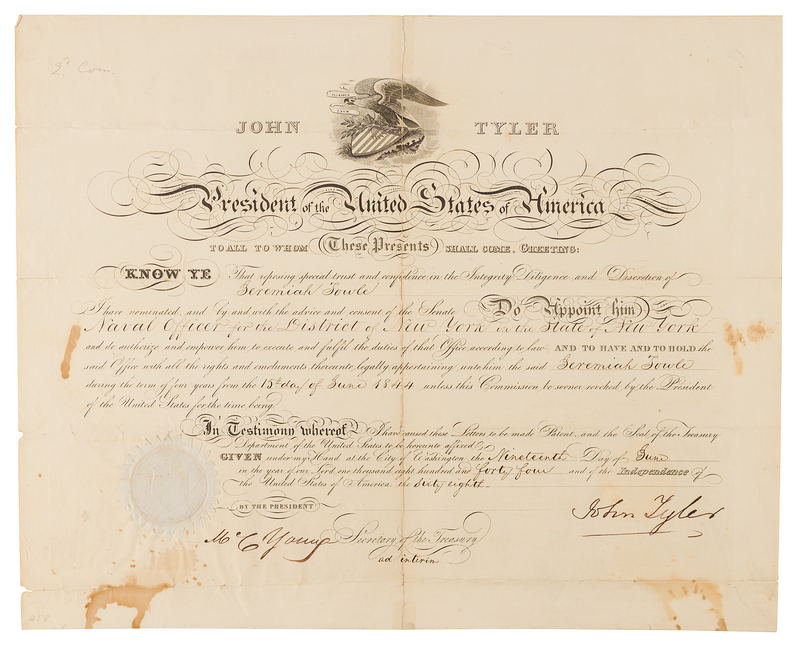 2d Com.
JOHN TYLER
President of the United States of America
TO ALL TO WHOM These Presents SHALL COME, GREETING:
KNOW YE That reposing special trust and confidence in the Integrity Diligence and Discretion of
Jeremiah Towle
I have nominated, and by and with the advice and consent of the Senate Do Appoint him
Naval Officer for the District of New York in the State of New York
and do authorize and empower him to execute and fulfil the duties of that Office according to law AND TO HAVE AND TO HOLD the
said Office with all the rights and emoluments thereunto legally appertaining unto him the said Jeremiah Towle
during the term of four years from the 15th day of June 1844 unless this Commission be sooner revoked by the President
of the United States for the time being.
In Testimony whereof I have caused these Letters to be made Patent, and the Seal of the Treasury
Department of the United States to be hereunto affixed
GIVEN under my Hand at the City of Washington the Nineteenth Day of June
in the year of our Lord one thousand eight hundred and forty four and of the Independence of
the United States of America the Sixty eighth.
BY THE PRESIDENT
John Tyler
McC Young Secretary of the Treasury
ad interim